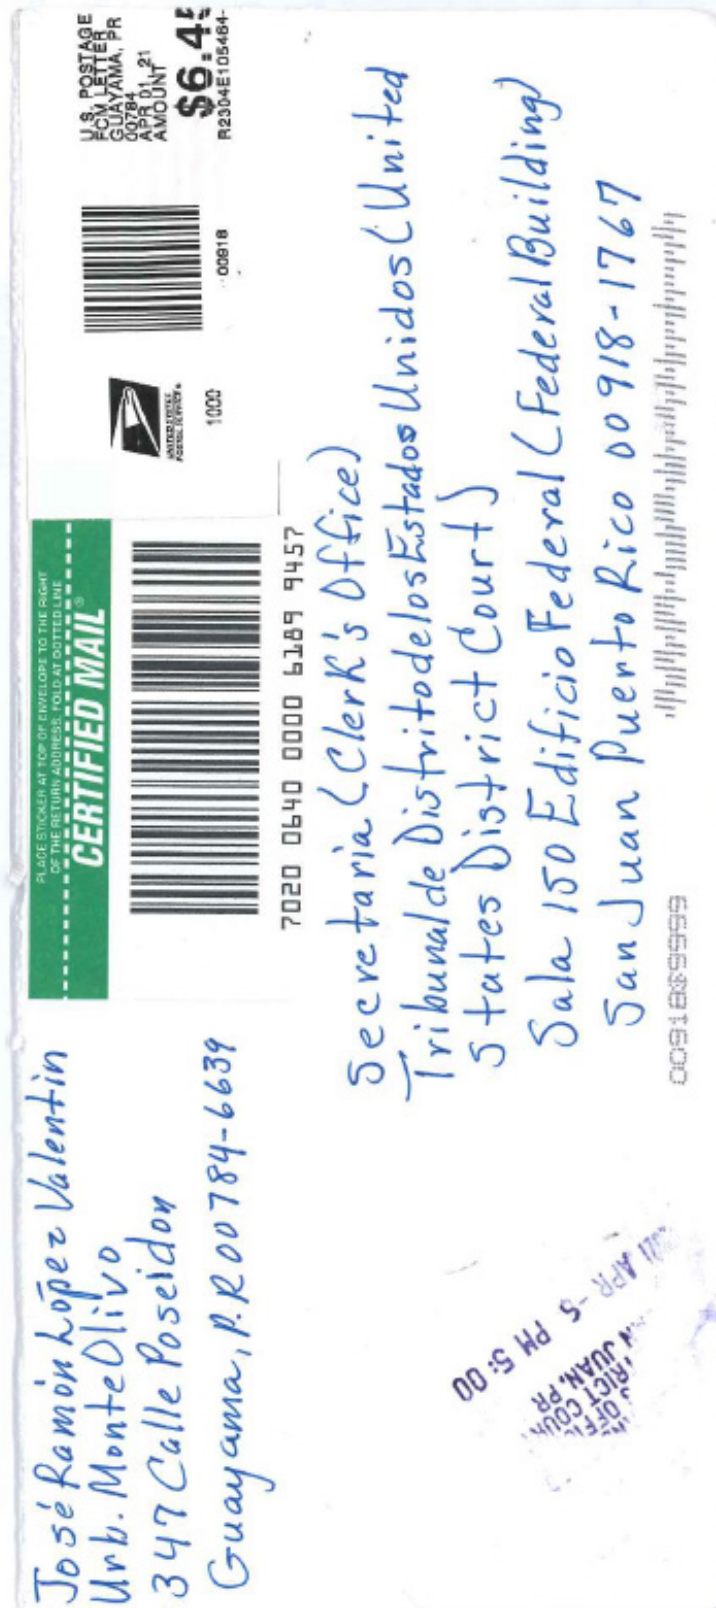 José Ramón López Valentin
Urb. Monte Olivo
347 Calle Poseidon
Guayama, P.R 00784-6639
PLACE STICKER AT TOP OF ENVELOPE TO THE RIGHT
OF THE RETURN ADDRESS, FOLD AT DOTTED LINE
CERTIFIED MAIL®
7020 0640 0000 6189 9457
UNITED STATES
POSTAL SERVICE®
1000
00918
U.S. POSTAGE
FCM LETTER
GUAYAMA, PR
00784
APR 01, 21
AMOUNT
$6.4
R2304E105464-
Secretaria (Clerk's Office)
Tribunal de Distrito de los Estados Unidos (United
States District Court)
Sala 150 Edificio Federal (Federal Building)
San Juan Puerto Rico 00918-1767
009189999
APR -5 PM 5:00
JUAN, PR